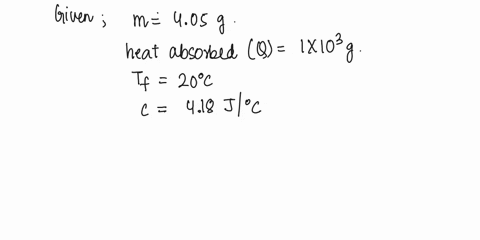 Given ; m = 4.05 g .
heat absorbed (Q) = 1X10³ g.
Tf = 20°C
c = 4.18 J/°C